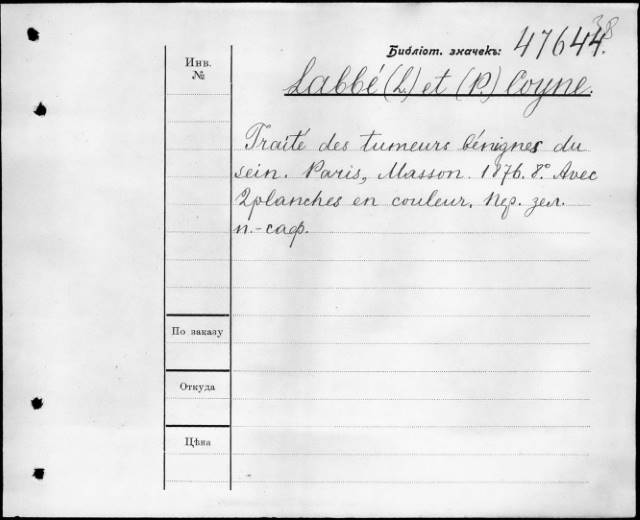 Библіот. значекъ: 47644.
Инв.
№
Labbé (L.) et (P.) Coyne.
Traité des tumeurs bénignes du
sein. Paris, Masson. 1876. 8° Avec
2 planches en couleur. Пер. зел.
п.-саф.
По заказу
Откуда
Цѣна